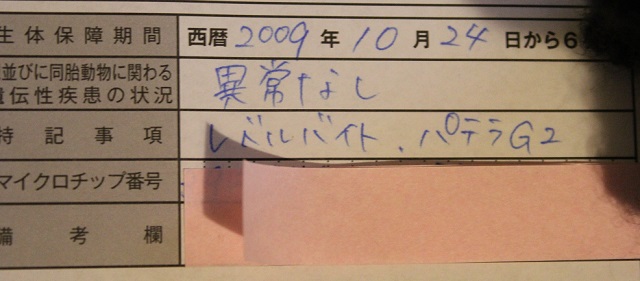 生体保障期間 西暦 2009 年 10 月 24 日から6
並びに同胎動物に関わる
遺伝性疾患の状況 異常なし
特記事項 レベルバイト、パテラG2
マイクロチップ番号
備考欄